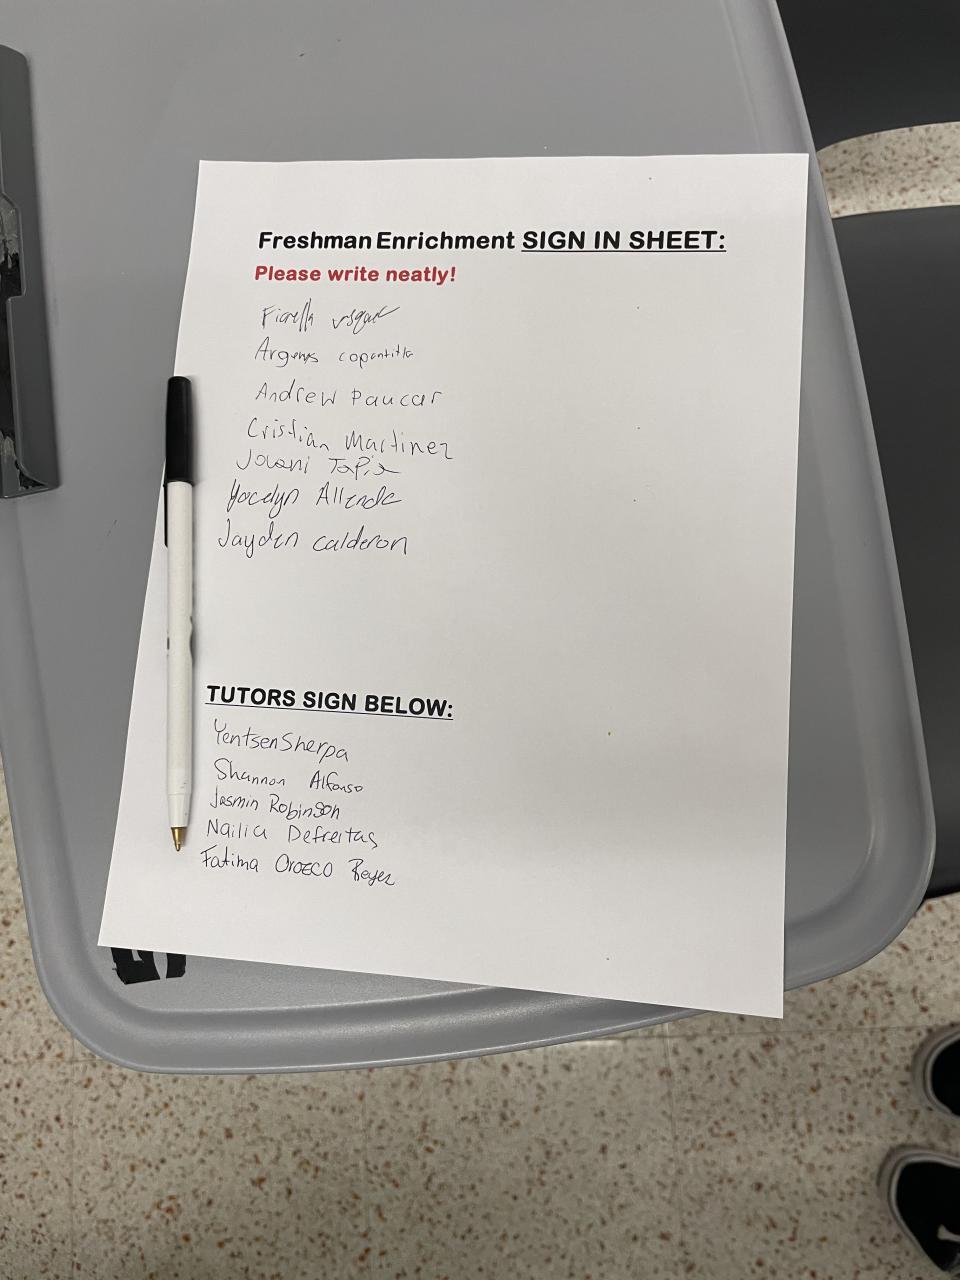 Freshman Enrichment SIGN IN SHEET:
Please write neatly!
Fiorella
Argenis copantitla
Andrew Paucar
Cristian Martinez
Jovani Tapia
Yocelyn Allende
Jayden calderon
TUTORS SIGN BELOW:
Yentsen Sherpa
Shannon Alfonso
Jasmin Robinson
Nailia Defreitas
Fatima Orozco Reyes